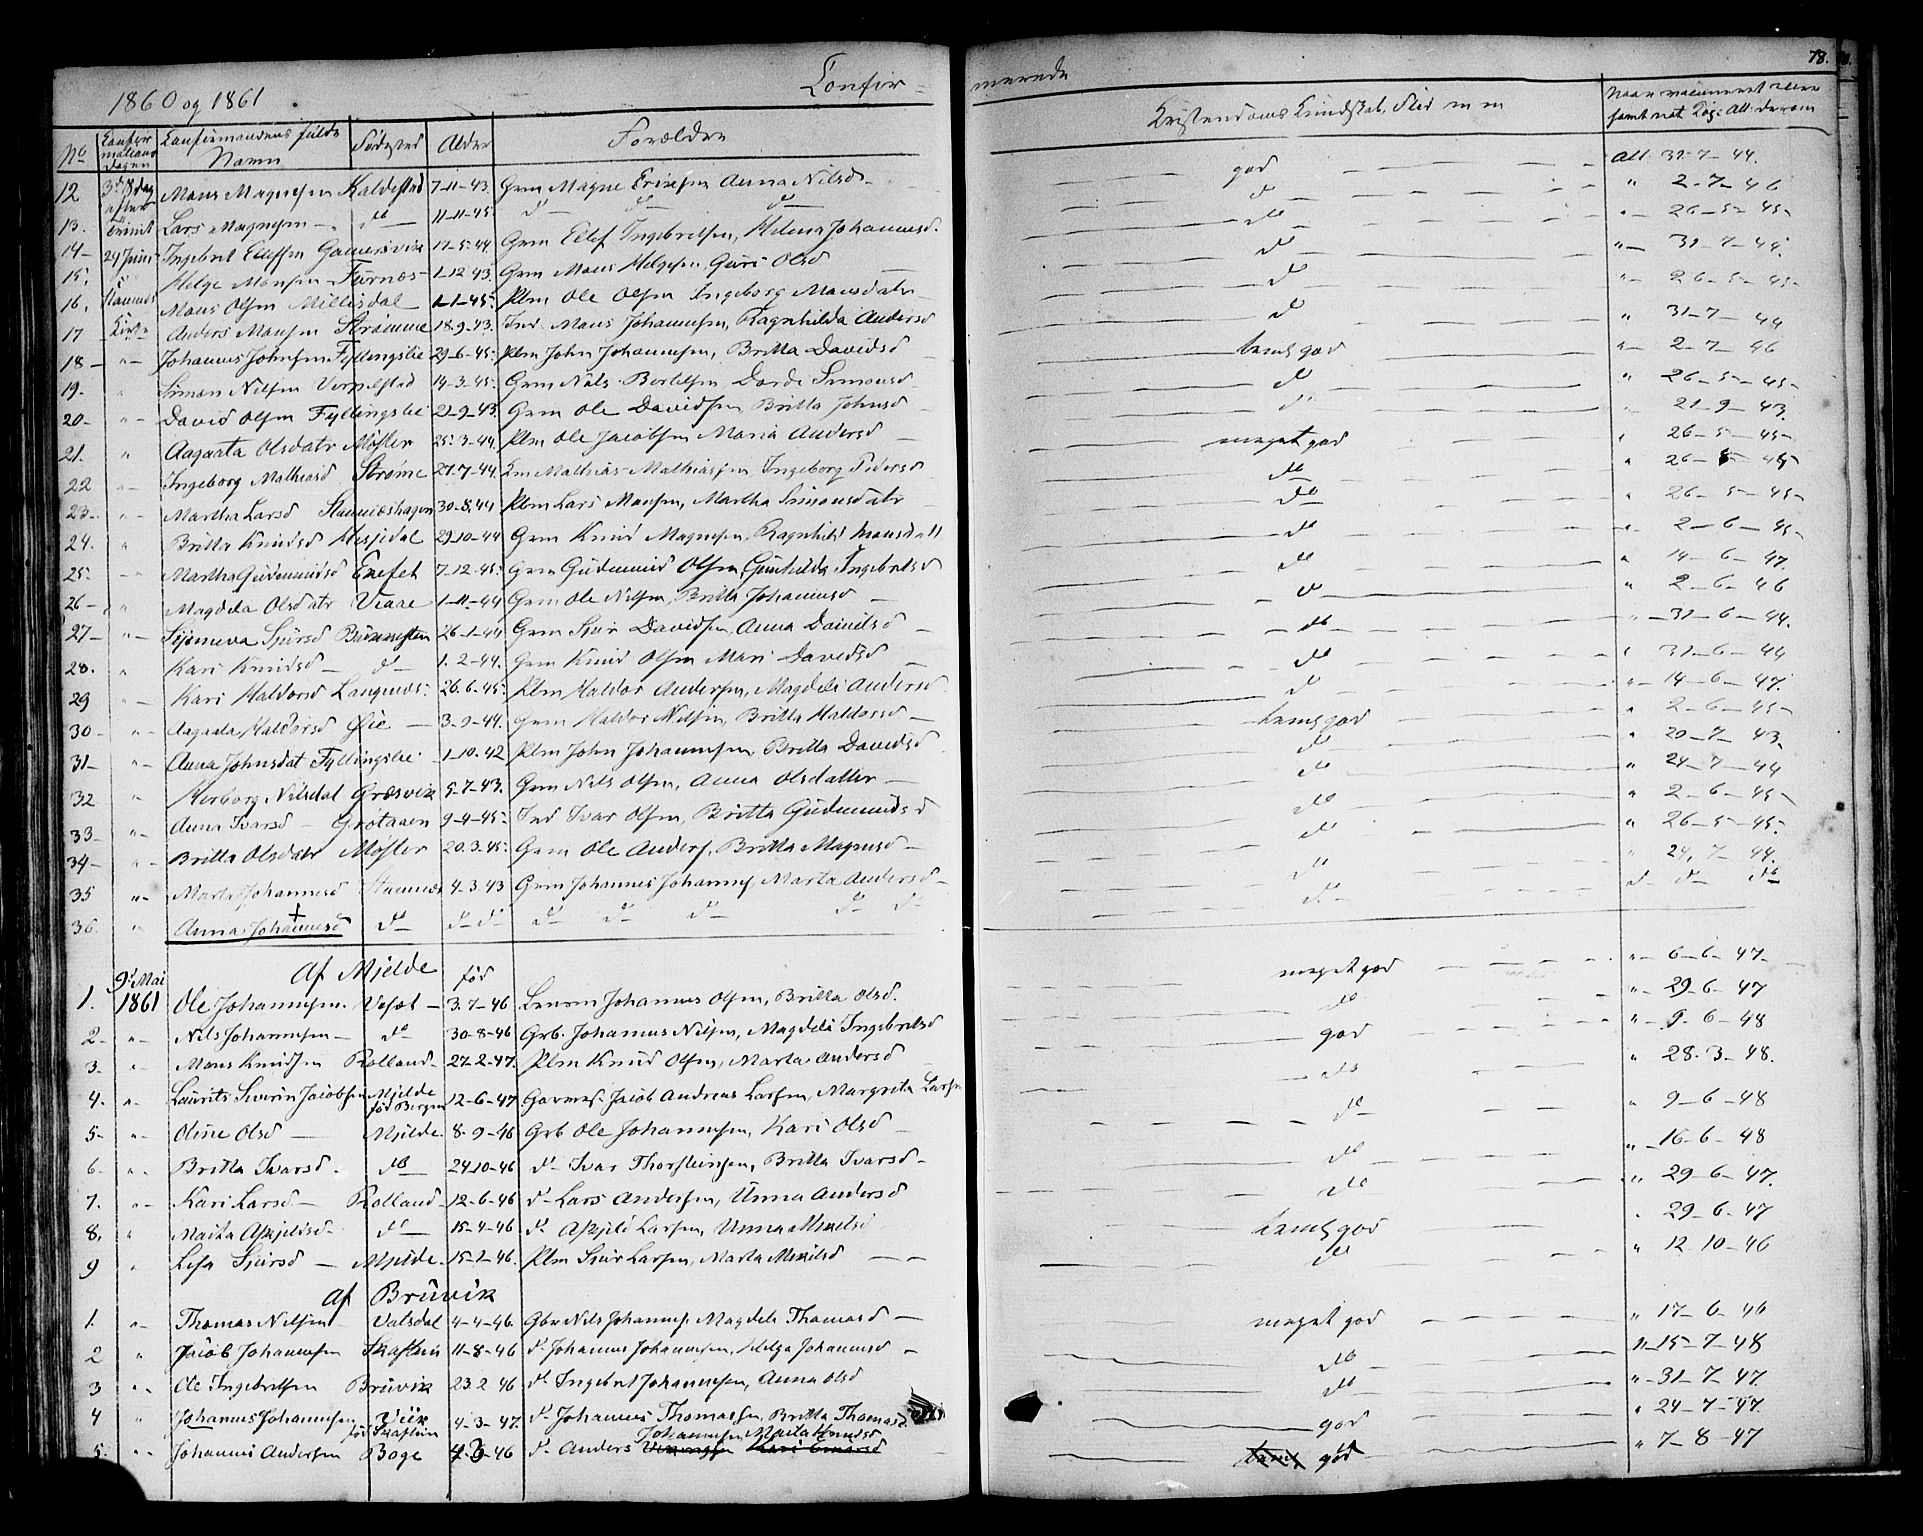 1860 og 1861 Confirmerede 78.
No Confirmationsdagen Confirmandens fulde Navn Fødested Alder Forældre Kristendoms Kundskab, Flid m m Naar vaccineret samt not Log: Att: derom
12 3d S dag efter Mons Magnesen Kaldestad 7-11-43. Grm Magne Eriksen Anna Nilsd god Att 31-7-44.
13. Trinit Lars Magnesen do 11-11-45. do do do do " 2-7-46
14 24 Juni Ingebret Elefsen Gammersvik 17-5-44 Grm Ellef Ingebretsen, Helena Johannesd. do " 26-5-45
15. i Helge Monsen Furnæs 1-12-43. Grm Mons Helgesen, Guri Olsd do " 31-7-44.
16. Stamnes Mons Olsen Millisdal 1-1-45. Plm Ole Olsen Ingeborg Monsdatr do " 26-5-45
17 Kirke Anders Monsen Strømme 18-9-43. Ind. Mons Johannesen, Ragnhilda Andersd do " 31-7-44
18 " Johannes Johnsen Fyllingslie 29-6-45. Plm John Johannesen, Britta Davidsd temlgod " 2-7-46
19. " Simon Nilsen Vespelstad 14-3-45. Grm Nils Bertelsen Dordi Simonsd do " 26-5-45
20 " David Olsen Fyllingslie 21-9-43. Grm Ole Davidsen, Britta Johnsd do " 21-9-43.
21. " Aagaata Olsdatr Møster 25-3-44. Plm Ole Jacobsen Maria Andersd megetgod " 26-5-45
22 " Ingeborg Mathiasd Strøme 27-7-44. Em Mathias Mathiassen Ingeborg Pedersd do " 26-5-45
23 " Martha Larsd Stamnæshagen 30-8-44 Plm Lars Monsen, Martha Simonsdatr do " 26-5-45
24. " Britta Knudsd Hesjedal 29-10-44 Grm Knud Magnesen, Ragnhild Monsdatt do " 2-6-45
25. " Martha Gudemundsd Exefet 7-12-45. Grm Gudemund Olsen, Gunhilda Ingebretsd do " 14-6-47.
26 " Magdela Olsdatr Viaae 1-11-44 Grm Ole Nilsen, Britta Johannesd do " 2-6-46
27 " Signeva Sjursd 26-1-44 Grm Sjur Davidsen, Anna Danielsd do " 31-6-44.
28. " Kari Knudsd do 1-2-44. Grm Knud Olsen Mari Davidsd do " 31-6-44
29 " Kari Haldorsd Langenæs 26-6-45. Plm Haldor Andersen, Magdeli Andersd do " 14-6-47.
30 " Aagaata Haldorsd Øie 3-9-44. Grm Haldor Nilsen, Britta Haldorsd temlgod " 2-6-45
31 " Anna Johnsdat Fyllingslie 1-10-42 Plm John Johannesen, Britta Davidsd do " 20-7-43.
32 " Herborg Nilsdat Græsvik 5-7-43. Grm Nils Olsen, Anna Olsdatter do " 24-7-44
33 " Anna Ivarsd Grotaaen 9-4-45. Ind Ivar Olsen, Britta Gudemundsd do " 2-6-45
34 " Britta Olsdatr Møster 20-3-45. Grm Ole Anders, Britta Magnesd do " 26-5-45.
35 " Marta Johannesd Stamnæs 4-3-43 Grm Johannes Johannes, Marta Andersd do " 24-7-44.
36. " Anna Johannesd do do do do do do do do do do do do
Af Mjelde
1. 9d Mai 1861 Ole Johannesen. Vesæt fød 3-7-46 Lensm Johannes Olsen, Britta Olsd. megetgod " 6-6-47
2 " Nils Johannesen do 30-8-46 Grb. Johannes Nilsen, Magdeli Ingebretsd do " 29-6-47
3. " Mons Knudsen Rolland 27-2-47. Plm Knud Olsen, Marta Andersd god " 9-6-48
4. " Laurits Severin Jacobsen Mjelde fød Bergen 12-6-47 Garvmes. Jacob Andreas Larsen, Margreta Larsen do " 28-3-48.
5 " Oline Olsd Mjelde. 8-9-46 Grb Ole Johannesen, Kari Olsd do " 9-6-48
6. " Britta Ivarsd. do 24-10-46 do Ivar Thorsteinsen, Britta Ivarsd do " 16-6-48
7. " Kari Larsd Rolland 12-6-46 do Lars Andersen, Unna Andersd do " 29-6-47.
8. " Maita Askjelsd do 15-4-46 do Askjeld Larsen, Unna Mikelsd temlgod " 29-6-47
9 " Lisa Sjursd Mjelde. 15-1-46. Plm Sjur Larsen, Marta Mikelsd do " 12-10-46
Af Brüvik
1. " Thomas Nilsen Vatsdal 4-4-46. Gbr Nils Johannes. Magdeli Thomasd megetgod " 17-6-46
2 " Jacob Johannesen Skaftun 11-8-46 do Johannes Johannesen, Helga Johannesd do " 15-7-48
3 " Ole Ingebretsen Brüvik 23-2-46 do Ingebret Johannesen, Anna Olsd do " 31-7-47.
4 " Johannes Johannesen Viik fød Skaftun 4-3-47. do Johannes Thomasen, Britta Thomasd god " 24-7-47.
5. " Johannes Andersen Boge 4-3-46 do Anders Johannesen Maita Knudsd god " 7-8-47